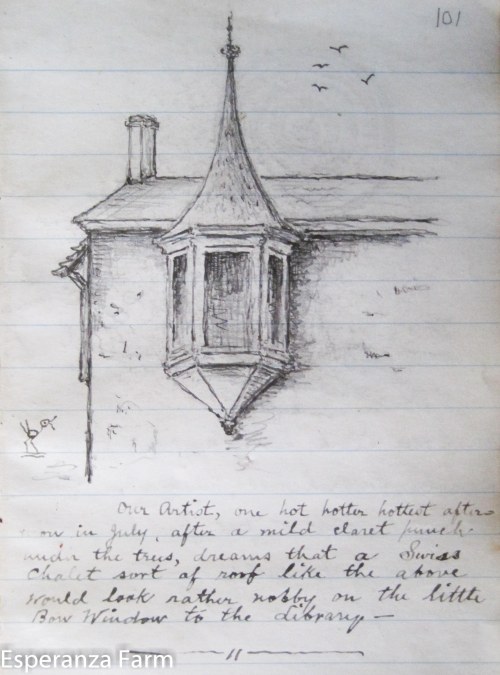 101
Our Artist, one hot hotter hottest after-
noon in July, after a mild claret punch
under the trees, dreams that a Swiss
Chalet sort of roof like the above
would look rather nobby on the little
Bow Window to the Library —
Esperanza Farm